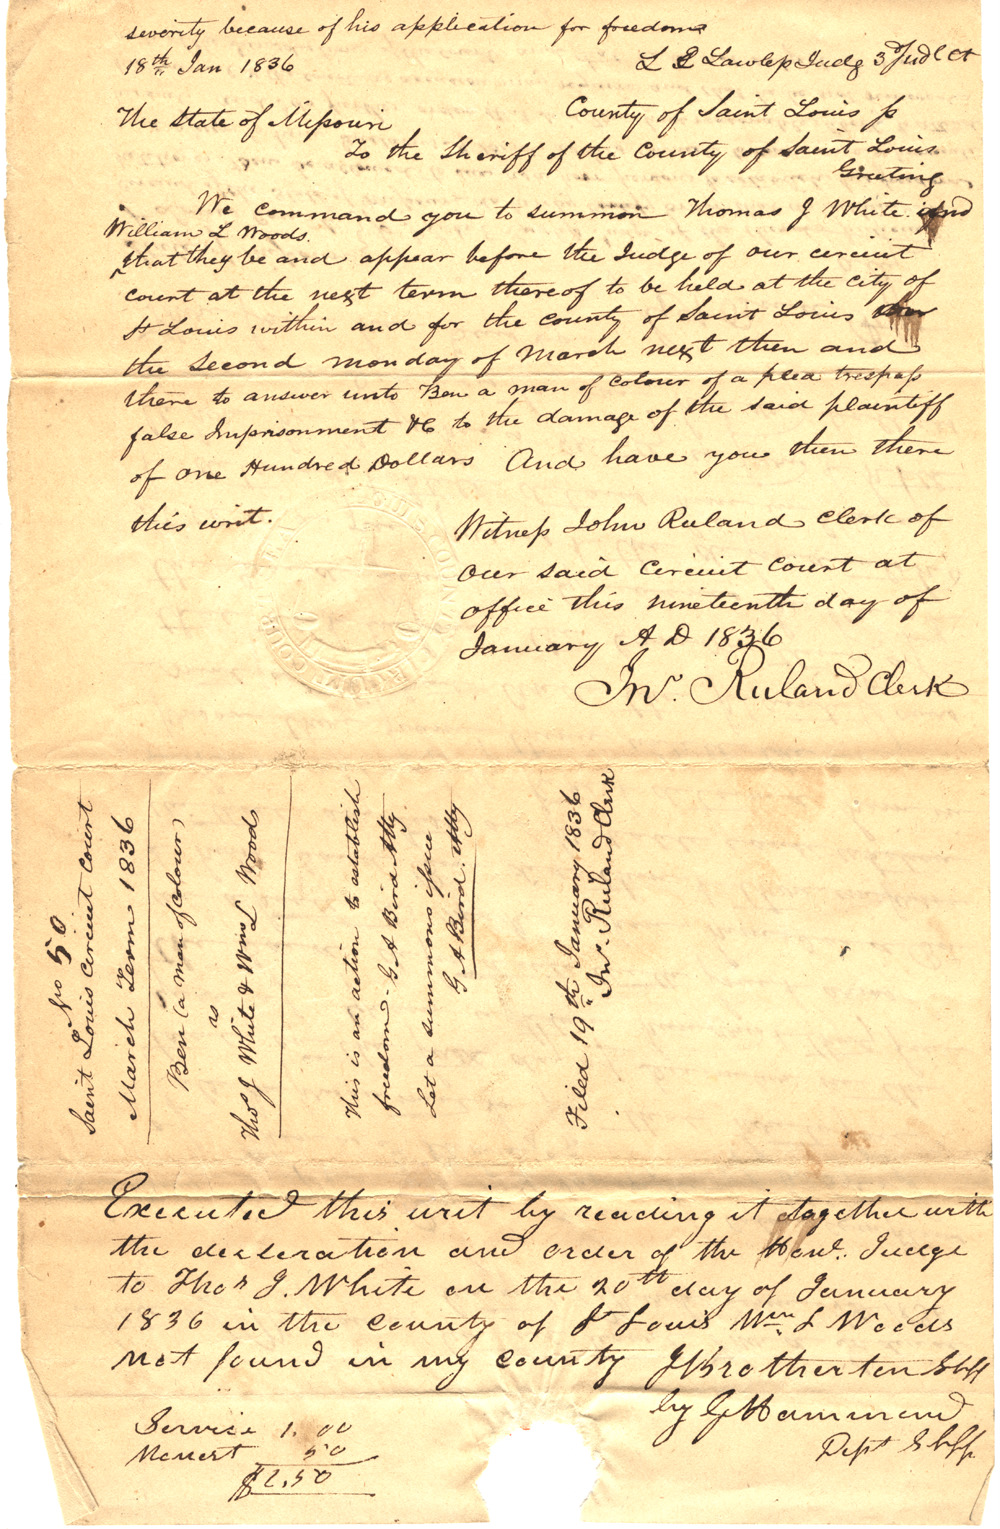 severity because of his application for freedom
18th Jan 1836 L E Lawless Judg 3d Judl Ct
The State of Missouri County of Saint Louis ss
To the Sheriff of the County of Saint Louis
Greeting
We command you to summon Thomas J White and
William L Woods
that they be and appear before the Judge of our circuit
court at the next term thereof to be held at the city of
St Louis within and for the county of Saint Louis
the second monday of March next then and
there to answer unto Ben a man of colour of a plea trespass
false Imprisonment &c to the damage of the said plaintiff
of one Hundred Dollars And have you then there
this writ.
Witness John Ruland Clerk of
our said circuit court at
office this nineteenth day of
January A D 1836
Jno. Ruland Clerk
No 50
Saint Louis Circuit Court
March Term 1836
Ben (a man of colour)
vs
Thos J White & Wm L Woods
This is an action to establish
freedom. G A Bird Atty
Let a summons issue
G A Bird. Atty
Filed 19th January 1836
Jno. Ruland Clerk
Executed this writ by reading it together with
the decleration and order of the Honl. Judge
to Thos J. White on the 20th day of January
1836 in the county of St Louis Wm. L Woods
not found in my county J Brotherton Shff
by G Hammond
Dept Shff
Service 1. 00
Nonest 50
$1,50